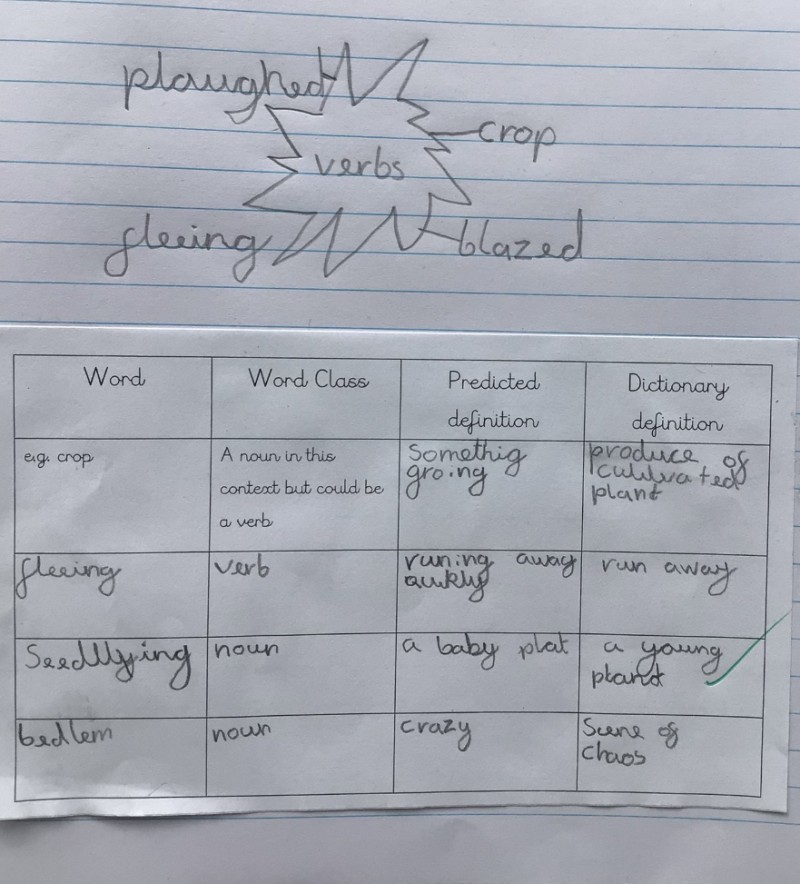 ploughed
crop
verbs
fleeing
blazed
Word
Word Class
Predicted
definition
Dictionary
definition
e.g. crop
A noun in this
context but could be
a verb
Somethig
groing
produce of
cultivated
plant
fleeing
verb
runing away
run away
noun
a baby plat
a young
plant
bedlem
noun
crazy
Scene of
chaos